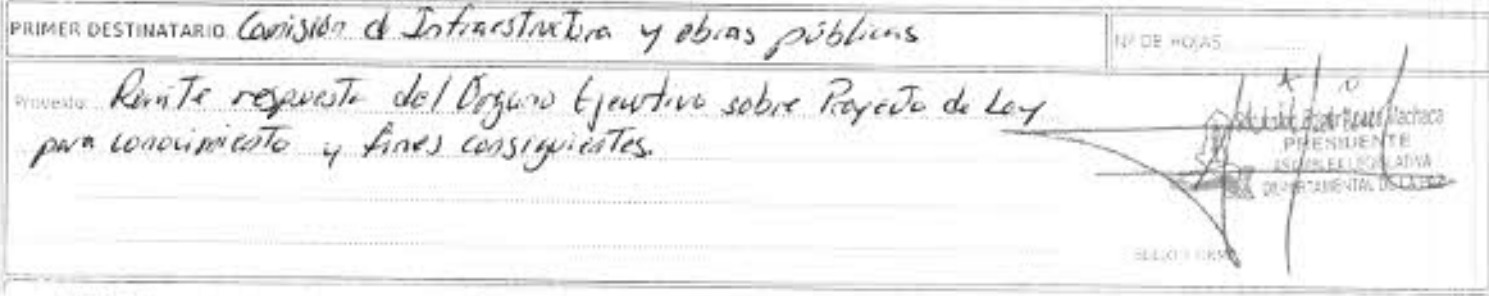 PRIMER DESTINATARIO Comisión d Infraestructura y obras públicas
Nº DE HOJAS
Proveido: Remite respuesta del Órgano Ejecutivo sobre Proyecto de Ley
para conocimiento y fines consiguientes.
Machaca
PRESIDENTE
ASAMBLEA LEGISLATIVA
DEPARTAMENTAL DE LA PAZ
SELLO Y FIRMA